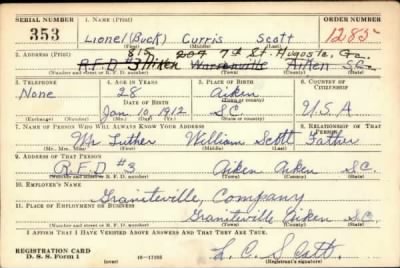 SERIAL NUMBER 1. NAME (Print) ORDER NUMBER
353 Lionel (Buck) Curris Scott 1285
(First) (Middle) (Last)
2. ADDRESS (Print) 815 7th St. Augusta, Ga.
R.F.D #3 Aiken Warrenville Aiken S.C.
(Number and street or R. F. D. number) (Town) (County) (State)
3. TELEPHONE 4. AGE IN YEARS 5. PLACE OF BIRTH 6. COUNTRY OF CITIZENSHIP
None 28 Aiken
DATE OF BIRTH (Town or county)
Jan 10 1912 S.C. U.S.A
(Exchange) (Number) (Mo.) (Day) (Yr.) (State or country)
7. NAME OF PERSON WHO WILL ALWAYS KNOW YOUR ADDRESS 8. RELATIONSHIP OF THAT PERSON
Mr Luther William Scott Father
(Mr., Mrs., Miss) (First) (Middle) (Last)
9. ADDRESS OF THAT PERSON
R.F.D #3 Aiken Aiken S.C.
(Number and street or R. F. D. number) (Town) (County) (State)
10. EMPLOYER'S NAME
Graniteville, Company
11. PLACE OF EMPLOYMENT OR BUSINESS
Graniteville Aiken S.C.
(Number and street or R. F. D. number) (Town) (County) (State)
I AFFIRM THAT I HAVE VERIFIED ABOVE ANSWERS AND THAT THEY ARE TRUE.
REGISTRATION CARD L. C. Scott
D. S. S. Form 1 (over) 16—17105 (Registrant's signature)